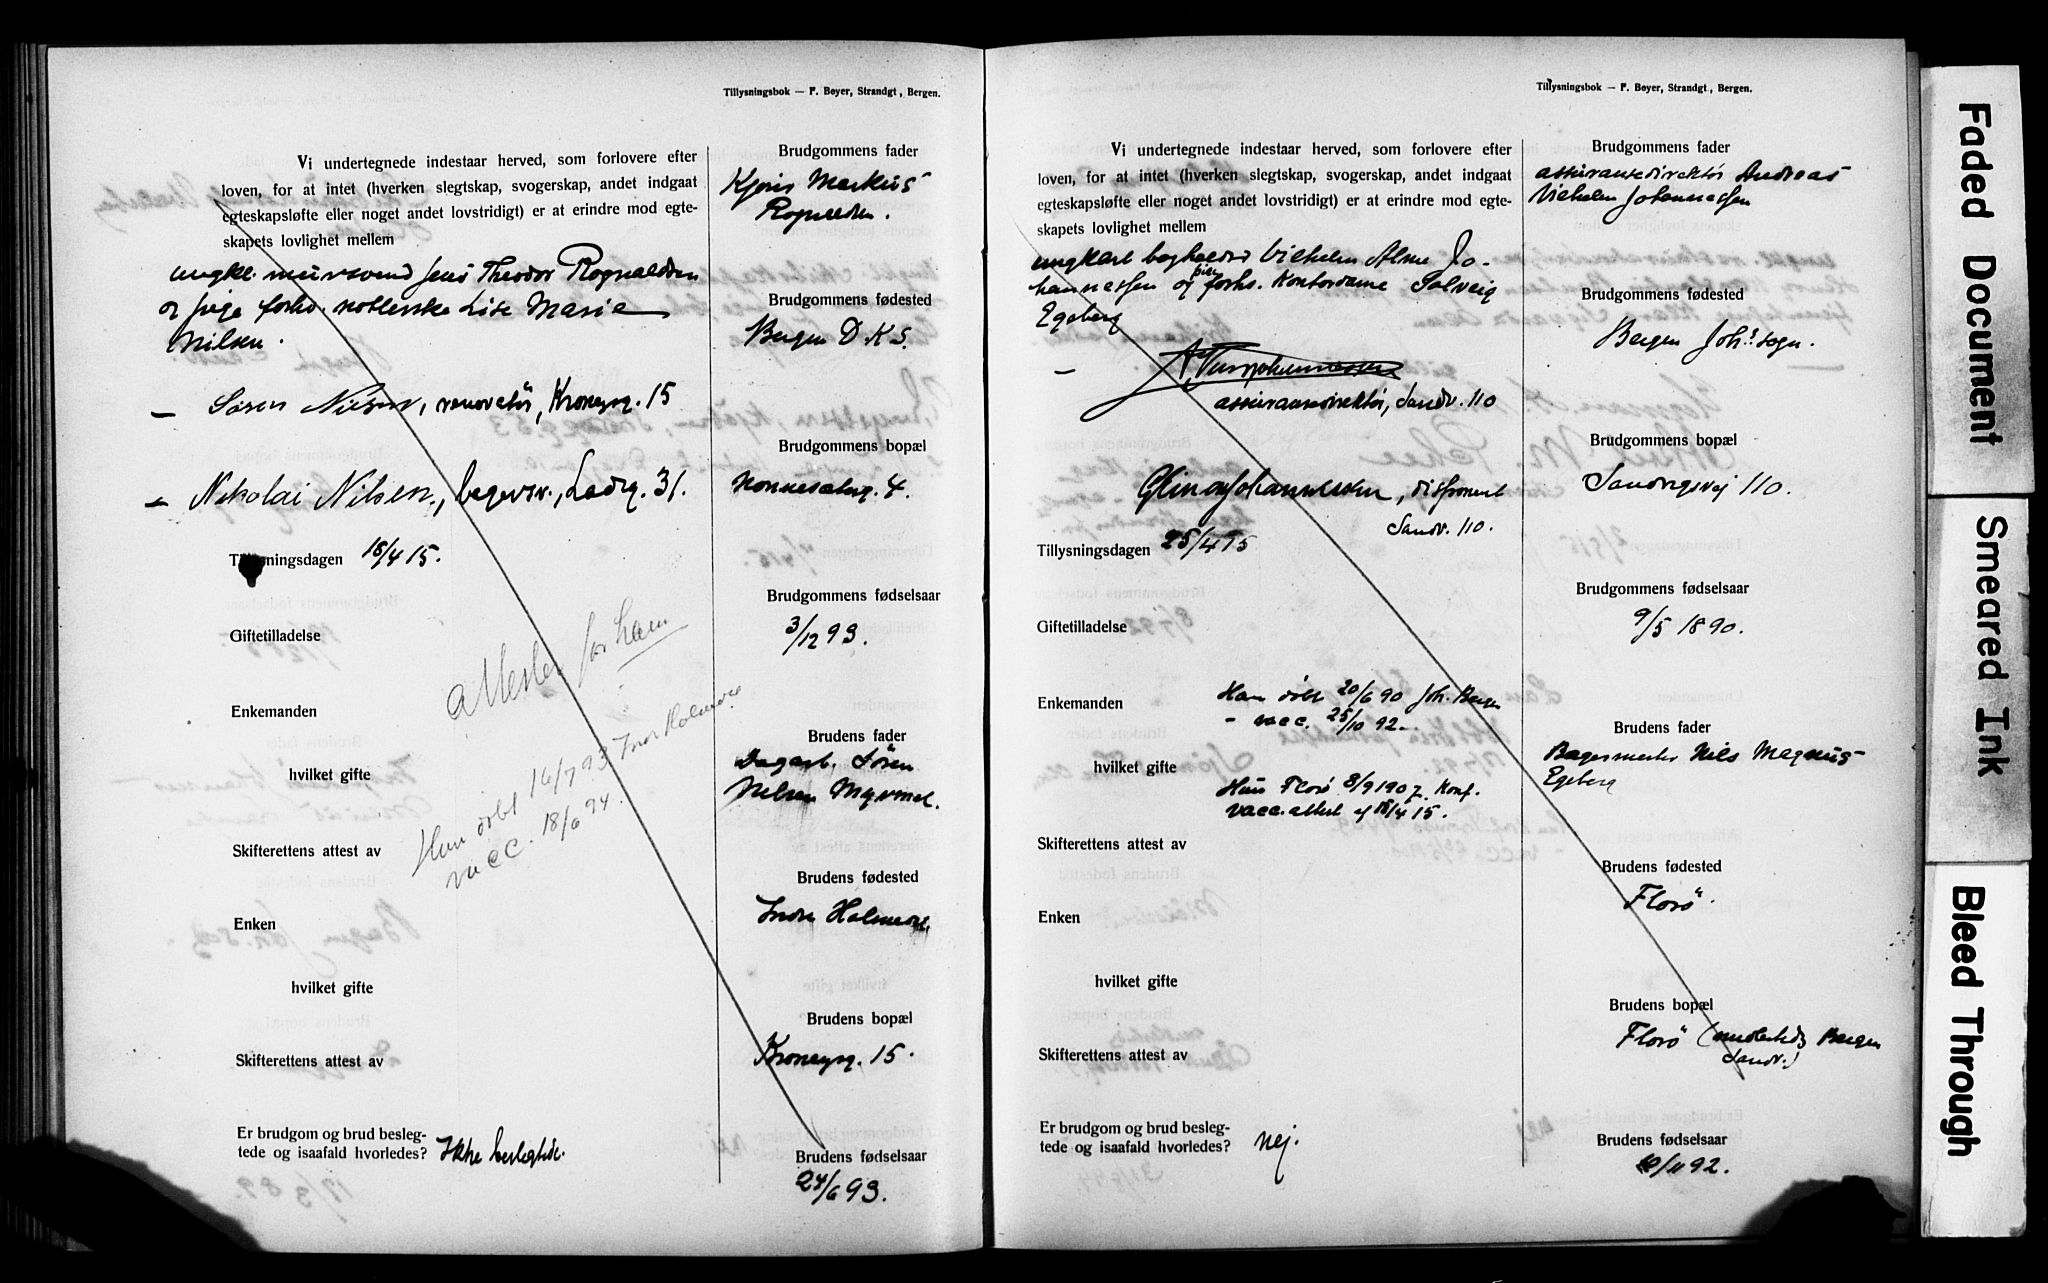 Tillysningsbok — F. Beyer, Strandgt, Bergen.
Vi undertegnede indestaar herved, som forlovere efter
loven, for at intet (hverken slegtskap, svogerskap, andet indgaat
egteskapsløfte eller noget andet lovstridigt) er at erindre mod egte-
skapets lovlighet mellem
ungkl. mursvend Jens Theodor Rognaldsen
og pige forhv. Lise Marie
Nilsen.
— Søren Nilsen, renovatør, Kroneysg. 15
— Nikolai Nilsen, Ladeg. 31.
Tillysningsdagen 18/4 15.
Giftetilladelse
Attester for ham
Enkemanden
hvilket gifte
Hun døbt 16/7 93 Indre Holmedal
vacc. 18/6 94.
Skifterettens attest av
Enken
hvilket gifte
Skifterettens attest av
Er brudgom og brud besleg-
tede og isaafald hvorledes? Ikke beslegtede.
Brudgommens fader
Markus
Rognaldsen.
Brudgommens fødested
Bergen D. K S.
Brudgommens bopæl
Nonneseterg. 4.
Brudgommens fødselsaar
3/12 93.
Brudens fader
Dagarb. Søren
Nilsen Myrmel.
Brudens fødested
Indre Holmedal
Brudens bopæl
Kroneysg. 15.
Brudens fødselsaar
24/6 93.
Tillysningsbok — F. Beyer, Strandgt, Bergen.
Vi undertegnede indestaar herved, som forlovere efter
loven, for at intet (hverken slegtskap, svogerskap, andet indgaat
egteskapsløfte eller noget andet lovstridigt) er at erindre mod egte-
skapets lovlighet mellem
ungkarl bogholder Vilhelm Jo-
hannessen og pike forhv. Kontordame Solveig
Egeberg
—
assurancedirektør, Sandv. 110
Johannessen, disponent
Sandv. 110.
Tillysningsdagen 25/4 15
Giftetilladelse
Enkemanden
Ham døbt 20/6 90 Joh. Bergen
— vacc. 25/10 92.
hvilket gifte
Hun Florø 8/9 1907 Konf.
vacc. attest af 18/4 15.
Skifterettens attest av
Enken
hvilket gifte
Skifterettens attest av
Er brudgom og brud besleg-
tede og isaafald hvorledes? nej.
Brudgommens fader
assurancedirektør Andreas
Vilhelm Johannessen
Brudgommens fødested
Bergen Joh.s sogn.
Brudgommens bopæl
Sandvigsvej 110.
Brudgommens fødselsaar
9/5 1890.
Brudens fader
Bagermester Nils Magnus
Egeberg
Brudens fødested
Florø.
Brudens bopæl
Florø (midlertidig Bergen
Sandv.)
Brudens fødselsaar
/11 92.
Faded Document
Smeared Ink
Bleed Through